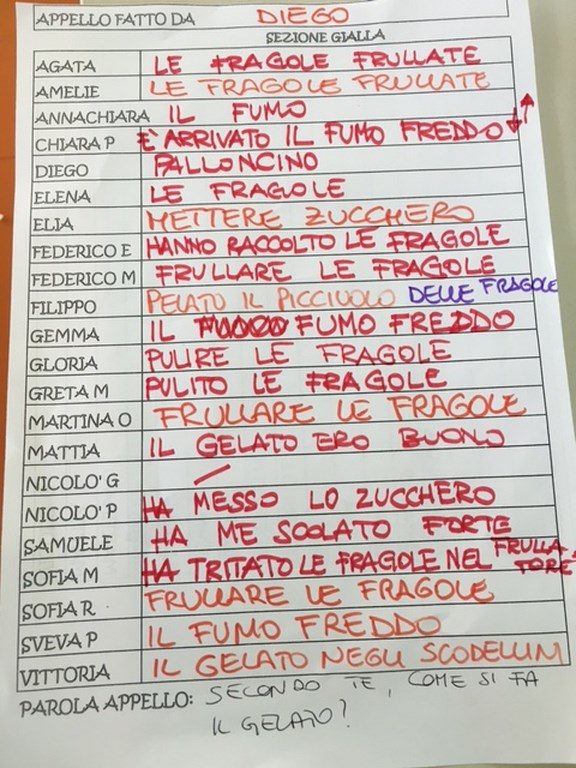 APPELLO FATTO DA DIEGO
SEZIONE GIALLA
AGATA LE FRAGOLE FRULLATE
AMELIE LE FRAGOLE FRULLATE
ANNACHIARA IL FUMO
CHIARA P È ARRIVATO IL FUMO FREDDO
DIEGO PALLONCINO
ELENA LE FRAGOLE
ELIA METTERE ZUCCHERO
FEDERICO E HANNO RACCOLTO LE FRAGOLE
FEDERICO M FRULLARE LE FRAGOLE
FILIPPO PELATO IL PICCIUOLO DELLE FRAGOLE
GEMMA IL FUMO FREDDO
GLORIA PULIRE LE FRAGOLE
GRETA M PULITO LE FRAGOLE
MARTINA O FRULLARE LE FRAGOLE
MATTIA IL GELATO ERO BUONO
NICOLO' G
NICOLO' P HA MESSO LO ZUCCHERO
SAMUELE HA ME SCOLATO FORTE
SOFIA M HA TRITATO LE FRAGOLE NEL FRULLA
TORE
SOFIA R FRULLARE LE FRAGOLE
SVEVA P IL FUMO FREDDO
VITTORIA IL GELATO NEGLI SCODELLINI
PAROLA APPELLO: SECONDO TE, COME SI FA
IL GELATO?